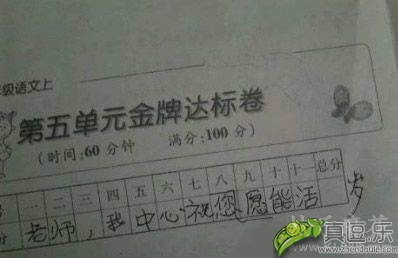 级语文上
第五单元金牌达标卷
(时间:60分钟 满分:100分)
一 二 三 四 五 六 七 八 九 十 十一 总分
分 老师，我中心祝您愿能活 岁
真逗乐
www.zhendoule.com